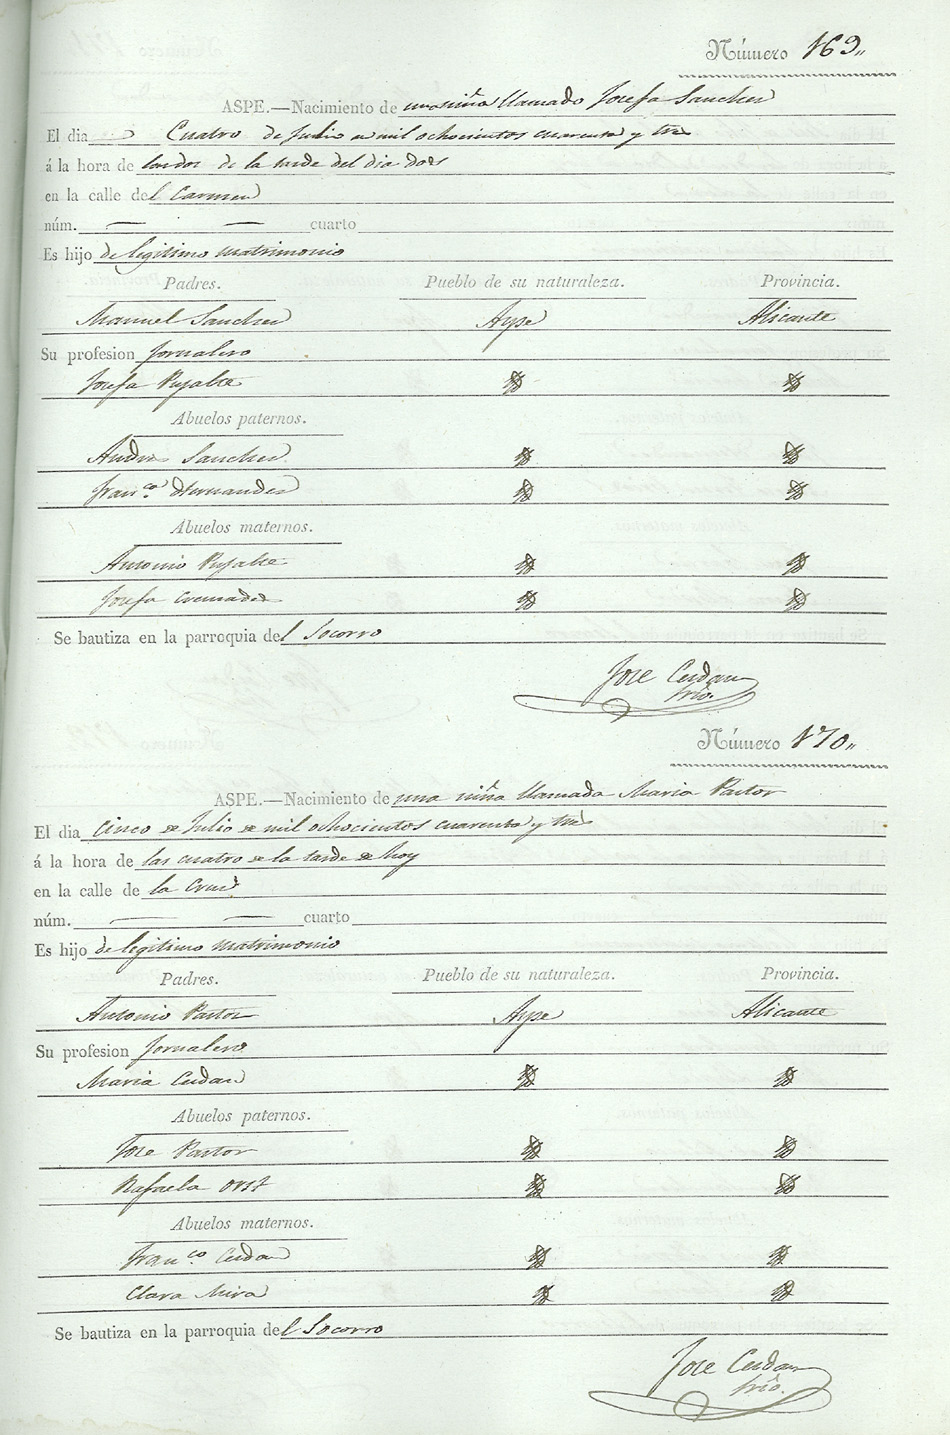 Número 169,,
ASPE.—Nacimiento de una niña llamado Josefa Sanchez
El dia Cuatro de Julio de mil ochocientos cuarenta y tres
á la hora de las dos de la tarde del dia dos
en la calle del Carmen
núm. — — cuarto
Es hijo de legitimo matrimonio
Padres. Pueblo de su naturaleza. Provincia.
Manuel Sanchez Aspe Alicante
Su profesion Jornalero
Josefa Pujalte
Abuelos paternos.
Andres Sanchez
Fran.co Hernandez
Abuelos maternos.
Antonio Pujalte
Josefa Cremades
Se bautiza en la parroquia del Socorro
Jose Cerdan
srio.
Número 170,,
ASPE.—Nacimiento de una niña llamada Maria Pastor
El dia cinco de Julio de mil ochocientos cuarenta y tres
á la hora de las cuatro de la tarde de hoy
en la calle de la Cruz
núm. — — cuarto
Es hijo de legitimo matrimonio
Padres. Pueblo de su naturaleza. Provincia.
Antonio Pastor Aspe Alicante
Su profesion Jornalero
Maria Cerdan
Abuelos paternos.
Jose Pastor
Rafaela
Abuelos maternos.
Fran.co Cerdan
Clara Mira
Se bautiza en la parroquia del Socorro
Jose Cerdan
srio.